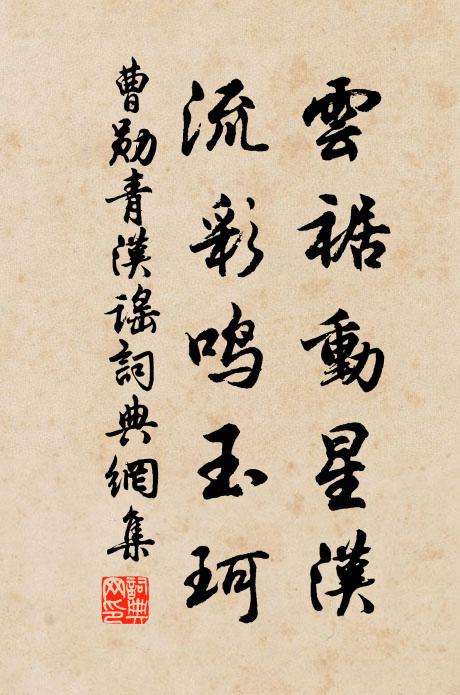 雲裾動星漢
流彩鳴玉珂
曹勛青漢謠詞典網集
詞典網印